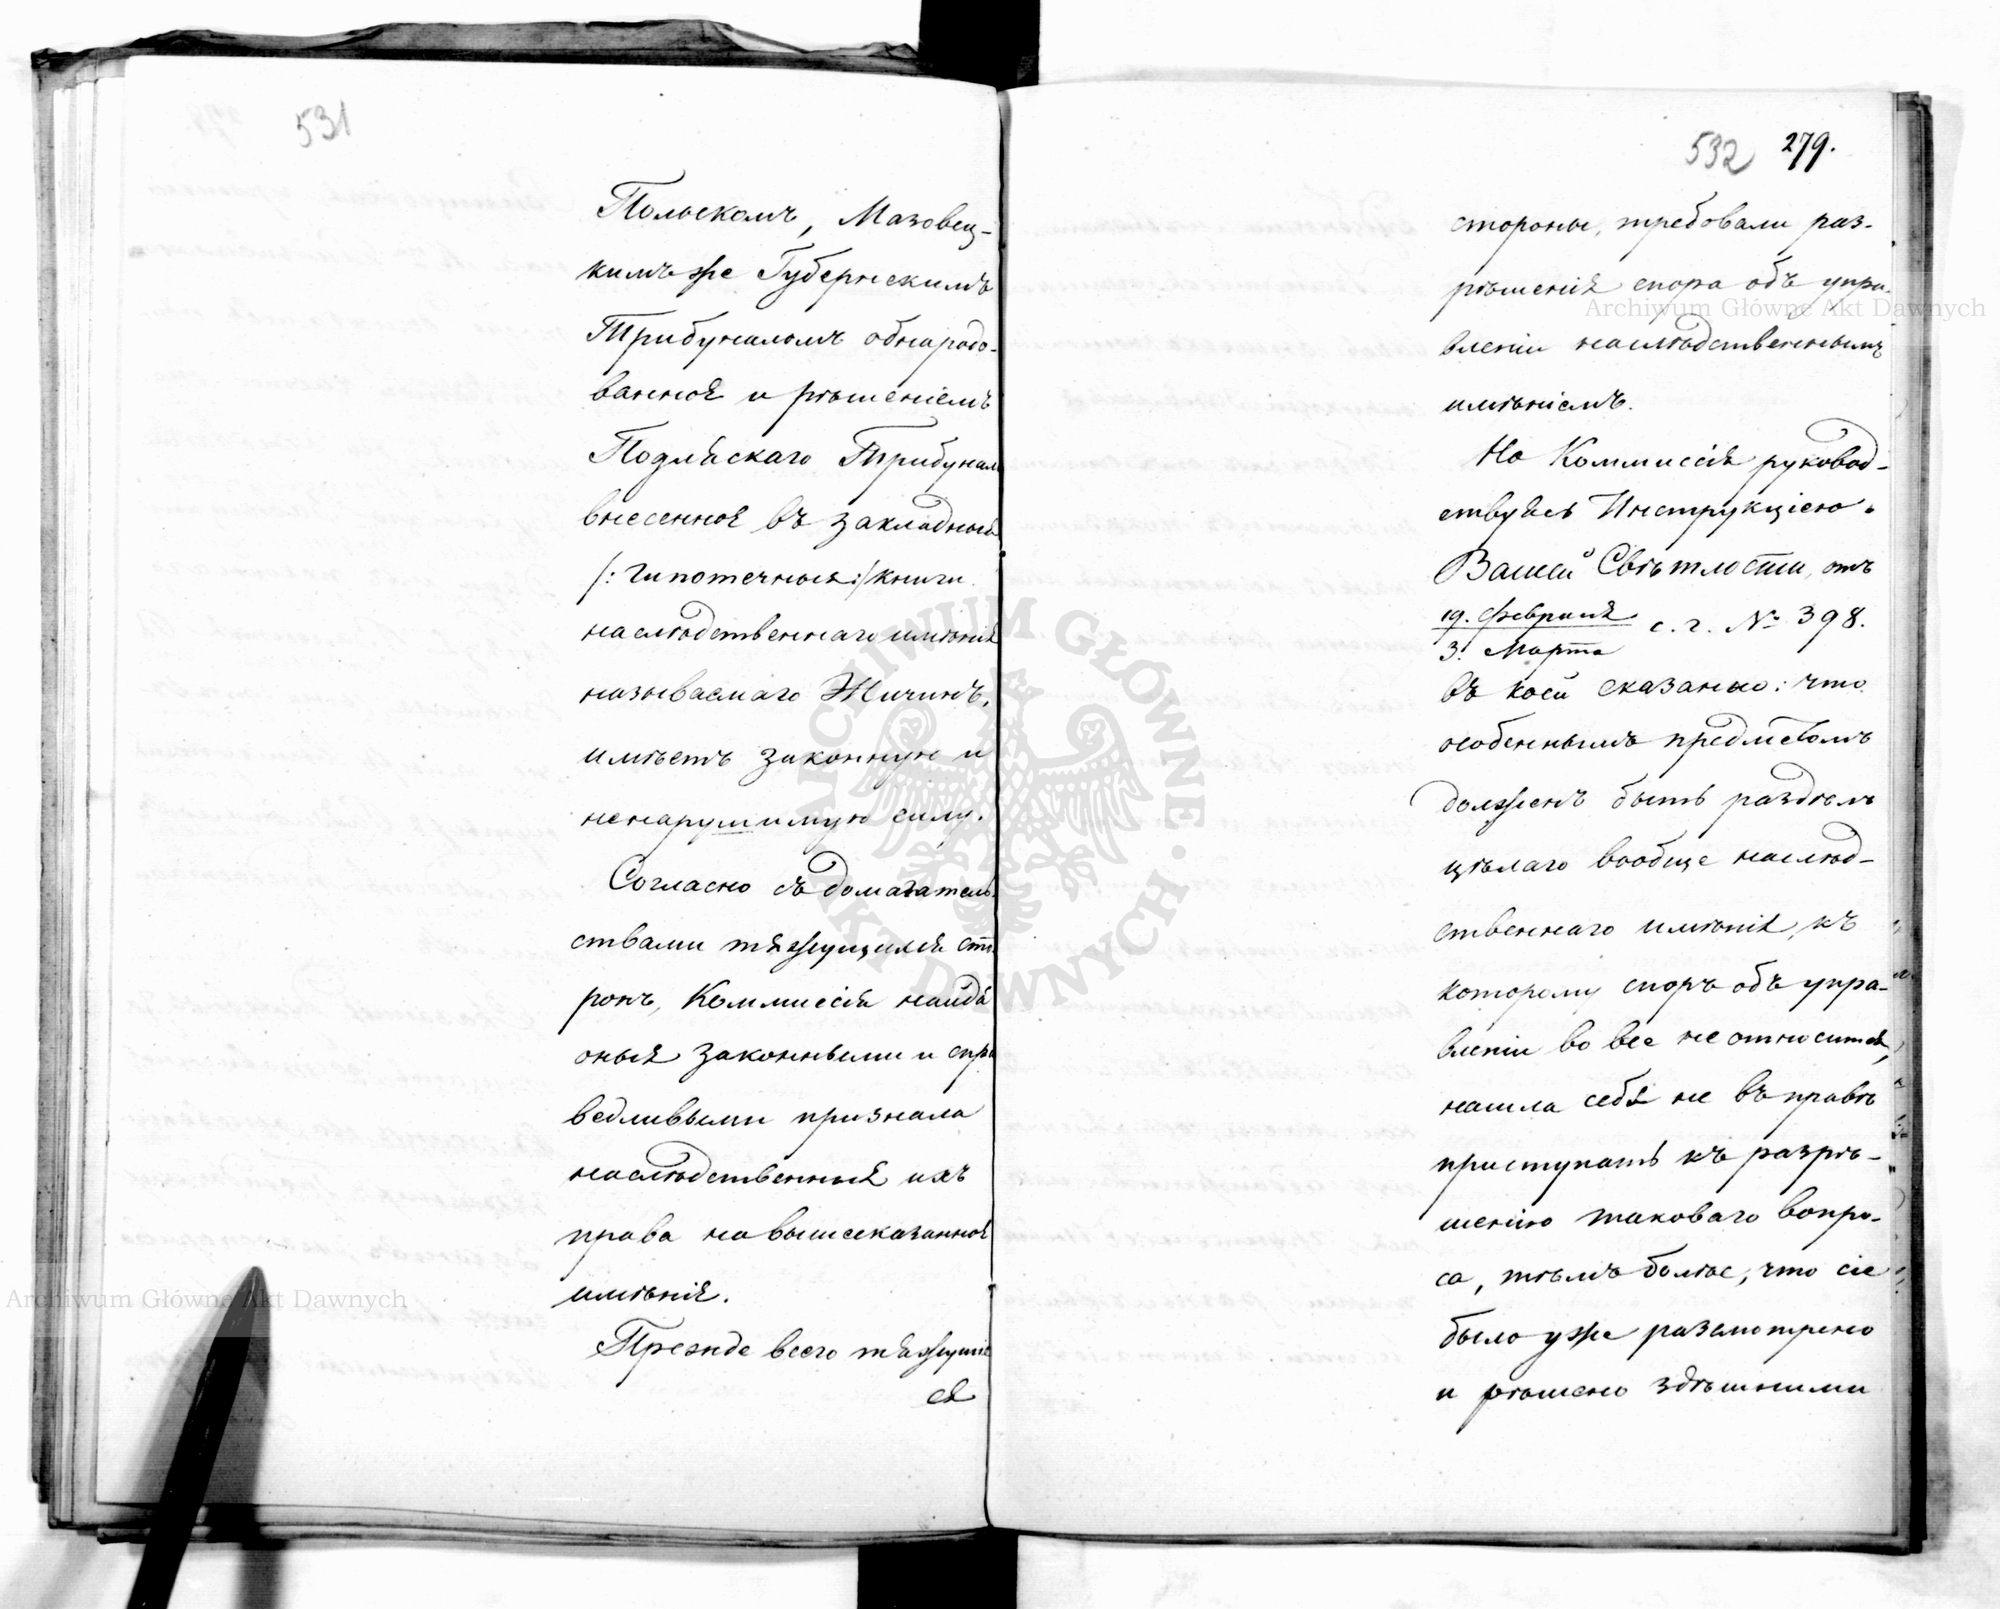 531
Польскомъ, Мазовец-
кимъ же Губернскимъ
Трибуналомъ обнародо-
ванное и рѣшеніемъ
Подляскаго Трибунал
внесенное въ закладныя
/: гипотечныя :/ книги
наслѣдственнаго имѣнія
называемаго Жичинъ,
имѣетъ законную и
ненарушимую силу.
Согласно съ домагатель-
ствами тяжущихся сто
ронъ, Коммиссія найдя
оныя законными и спра
ведливыми признала
наслѣдственныя ихъ
права на вышесказанное
имѣнія.
Прежде всего тяжущіе
ся
532 279.
стороны, требовали раз-
рѣшенія спора объ упра-
вленіи наслѣдственнымъ
имѣніемъ.
Но Коммиссія руковод-
ствуясь Инструкціею
Вашей Свѣтлости, отъ
19. Февраля
3. Марта с. г. № 398.
въ коей сказано: что
особеннымъ предметомъ
долженъ быть раздѣлъ
цѣлаго вообще наслѣд-
ственнаго имѣнія, къ
которому споръ объ упра-
вленіи во все не относится,
нашла себя не въ правѣ
приступать къ разрѣ-
шенію таковаго вопро-
са, тѣмъ болѣе, что сіе
было уже разсмотрено
и рѣшено здѣшними
Archiwum Główne Akt Dawnych
Archiwum Główne Akt Dawnych
ARCHIWUM GŁÓWNE · AKT DAWNYCH ·